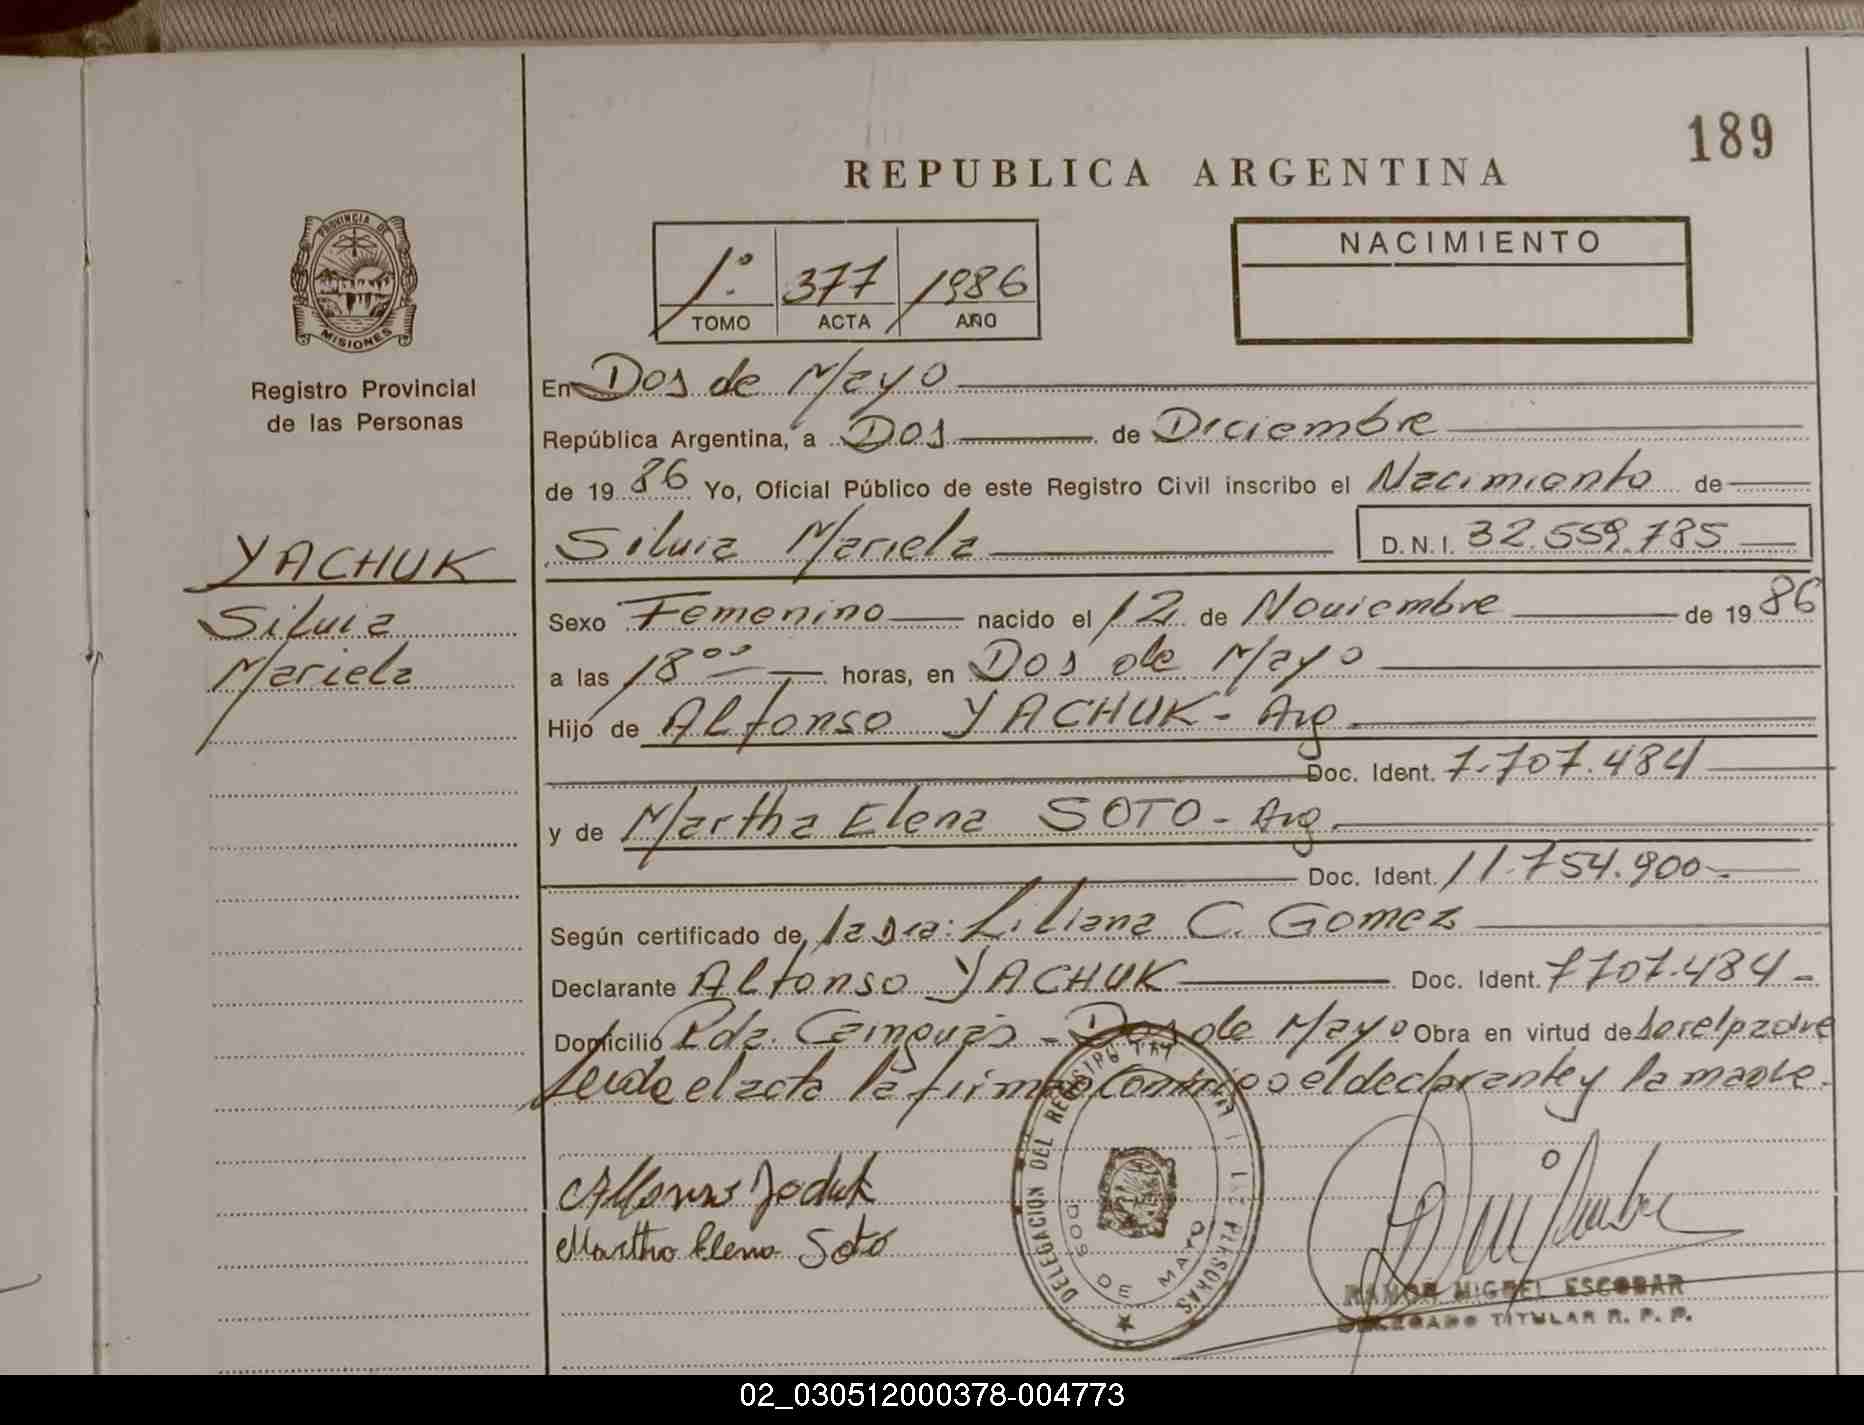 189
REPUBLICA ARGENTINA
PROVINCIA DE
MISIONES
Registro Provincial
de las Personas
1º 377 1986
TOMO ACTA AÑO
NACIMIENTO
En Dos de Mayo
República Argentina, a Dos de Diciembre
de 1986 Yo, Oficial Público de este Registro Civil inscribo el Nacimiento de
Silvia Mariela D.N.I. 32.559.785
YACHUK
Silvia
Mariela
Sexo Femenino nacido el 12 de Noviembre de 1986
a las 18°° horas, en Dos de Mayo
Hijo de Alfonso YACHUK - Arg
Doc. Ident. 7.707.484
y de Martha Elena SOTO - Arg.
Doc. Ident. 11.754.900-
Según certificado de la Dra: Liliana C. Gomez
Declarante Alfonso YACHUK Doc. Ident. 7707.484-
Domicilio Pda. Cainguás - Dos de Mayo Obra en virtud de ser el padre
Leida el acta la firman Conmigo el declarante y la madre.
Martha Elena Soto
DELEGACION DEL REGISTRO
PERSONAS
DOS DE MAYO
RAMON MIGUEL ESCOBAR
DELEGADO TITULAR R. P. P.
02_030512000378-004773